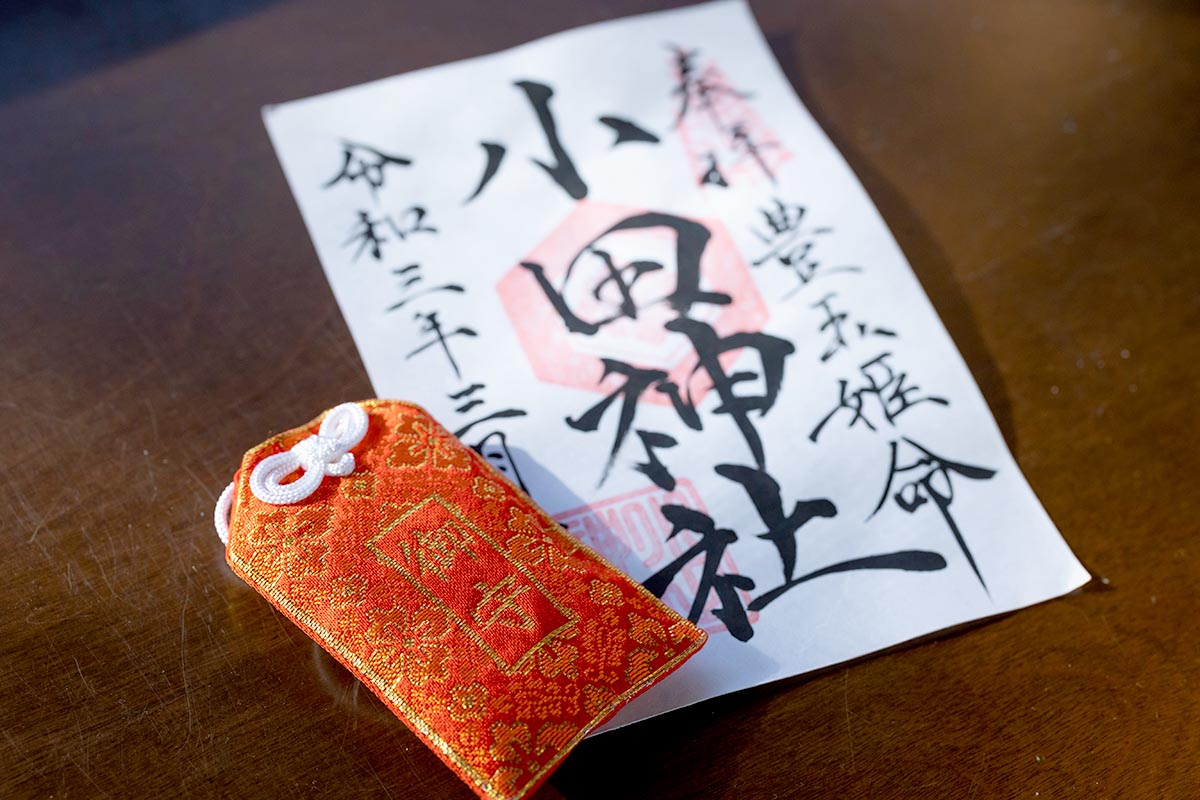 奉拝
豊玉姫命
小田神社
令和三年三月
御守